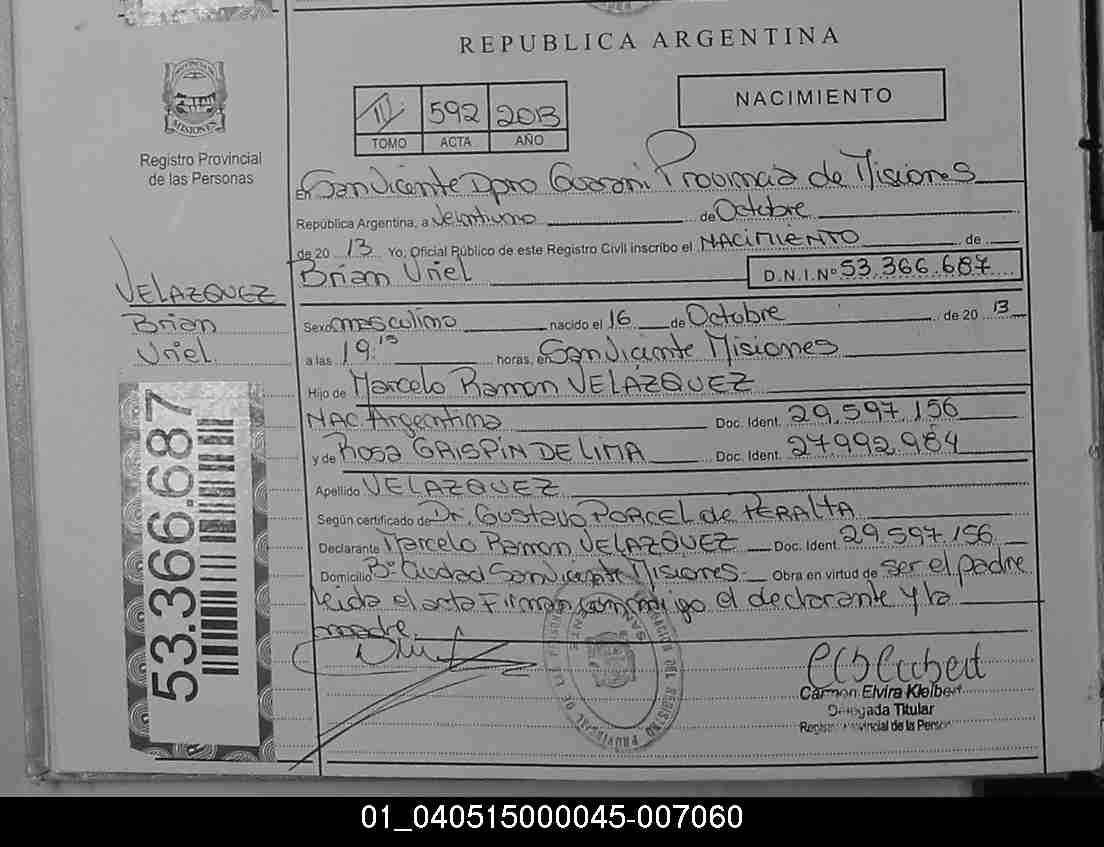 REPUBLICA ARGENTINA
MISIONES
Registro Provincial
de las Personas
III 592 2013
TOMO ACTA AÑO
NACIMIENTO
En San Vicente Dpto Guarani Provincia de Misiones
República Argentina, a Veintiuno de Octubre
de 20 13 Yo, Oficial Público de este Registro Civil inscribo el NACIMIENTO de
Brian Uriel D.N.I.Nº 53.366.687
VELAZQUEZ
Brian
Uriel
Sexo masculino nacido el 16 de Octubre de 20 13
a las 19:15 horas, en San Vicente Misiones
Hijo de Marcelo Ramon VELÁZQUEZ
NAC Argentina Doc. Ident. 29.597.156
y de Rosa GRISPÍN DE LIMA Doc. Ident. 27992.984
Apellido VELAZQUEZ
Según certificado de Dr. Gustavo PORCEL de PERALTA
Declarante Marcelo Ramon VELAZQUEZ Doc. Ident. 29.597.156
Domicilio Bº Ciudad San Vicente Misiones- Obra en virtud de ser el padre
leida el acta Firman conmigo el declarante y la
madre
53.366.687
Carmen Elvira Kleibert
Delegada Titular
Registro Provincial de la Person
01_040515000045-007060